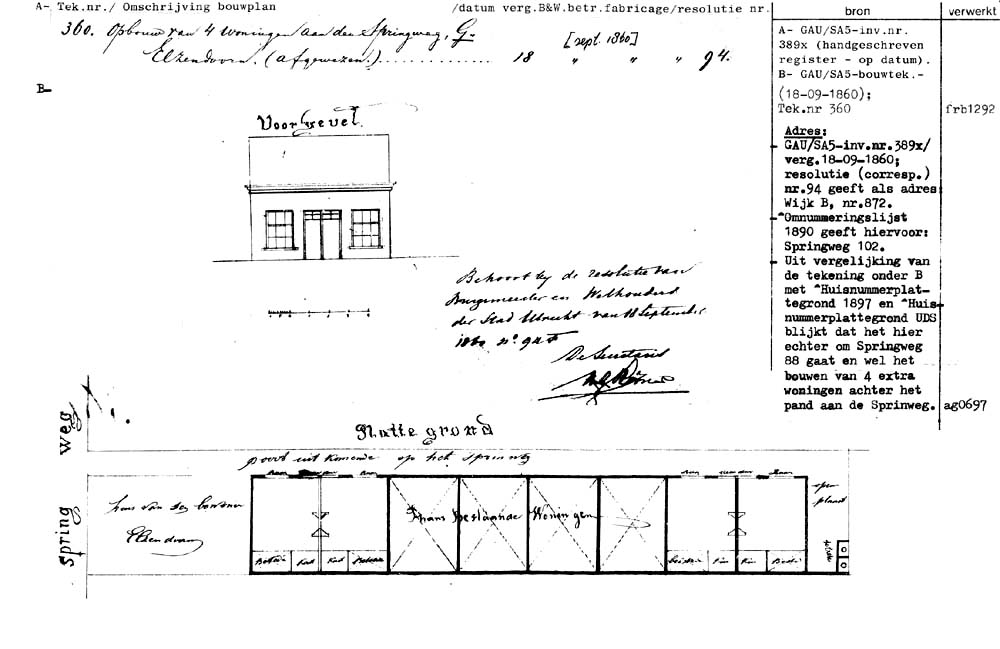 A- Tek.nr./ Omschrijving bouwplan /datum verg.B&W.betr.fabricage/resolutie nr.
bron
verwerkt
360. Opbouw van 4 Woningen aan den Springweg, G.
Elzendoorn. (afgewezen.) 18 [sept. 1860] " " " 94.
A- GAU/SA5-inv.nr.
389x (handgeschreven
register - op datum).
B- GAU/SA5-bouwtek.-
(18-09-1860);
Tek.nr 360
frb1292
B-
Voorgevel.
Adres:
- GAU/SA5-inv.nr.389x/
verg.18-09-1860;
resolutie (corresp.)
nr.94 geeft als adres
Wijk B, nr.872.
-^Omnummeringslijst
1890 geeft hiervoor:
Springweg 102.
- Uit vergelijking van
de tekening onder B
met ^Huisnummerplat-
tegrond 1897 en ^Huis-
nummerplattegrond UDS
blijkt dat het hier
echter om Springweg
88 gaat en wel het
bouwen van 4 extra
woningen achter het
pand aan de Sprinweg.
ag0697
Behoort bij de resolutie van
Burgemeester en Wethouders
der Stad Utrecht van 18 September
1860 n°. 94
De Secretaris
Platte grond
Spring weg
poort uit komende op het Springweg
huis van den
Elzendoorn
Thans bestaande Woningen
plaats